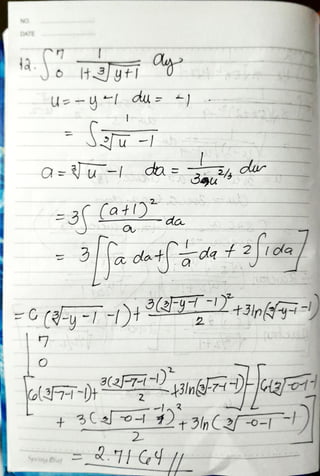 NO.
DATE
12. ∫₀⁷ 1/(1+∛(y+1)) dy
u = -y-1 du = -1
= ∫ 1/(∛u -1)
a = ∛u -1 da = 1/(3u^(2/3)) du
= 3∫ (a+1)²/a da
= 3[∫a da + ∫1/a da + 2∫1 da]
= 6(∛(-y-1) -1) + 3(∛(-y-1) -1)²/2 + 3ln(∛(-y-1) -1)
|₀⁷
[6(∛(-7-1) -1) + 3(∛(-7-1) -1)²/2 + 3ln(∛(-7-1) -1)] - [6(∛(-0-1) -1
+ 3(∛(-0-1) -1)²/2 + 3ln(∛(-0-1) -1)]
= 2.7164 //